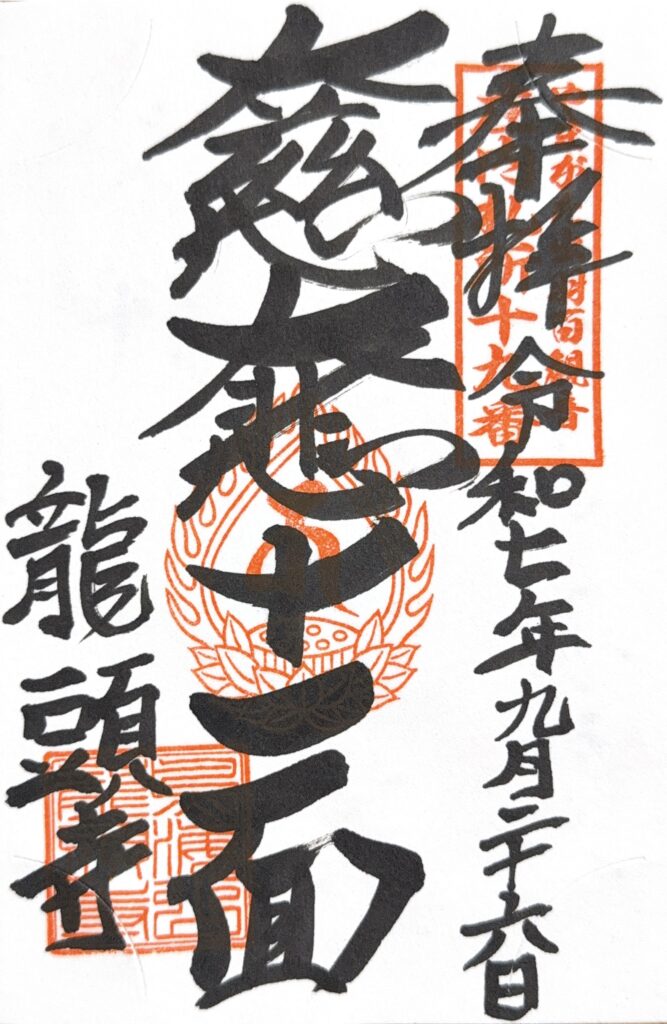 奉拝 令和七年九月二十六日
百観音
札所十九番
大慈大悲十一面
龍頭寺